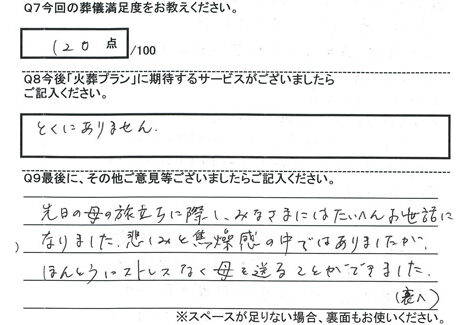 Q7今回の葬儀満足度をお教えください。
120 点 /100
Q8今後「火葬プラン」に期待するサービスがございましたら
ご記入ください。
とくにありません.
Q9最後に、その他ご意見等ございましたらご記入ください。
先日の母の旅立ちに際し、みなさまにはたいへんお世話に
なりました. 悲しみと焦燥感の中ではありましたが、
ほんとうにストレスなく母を送ることができました.
(裏へ)
※スペースが足りない場合、裏面もお使いください。